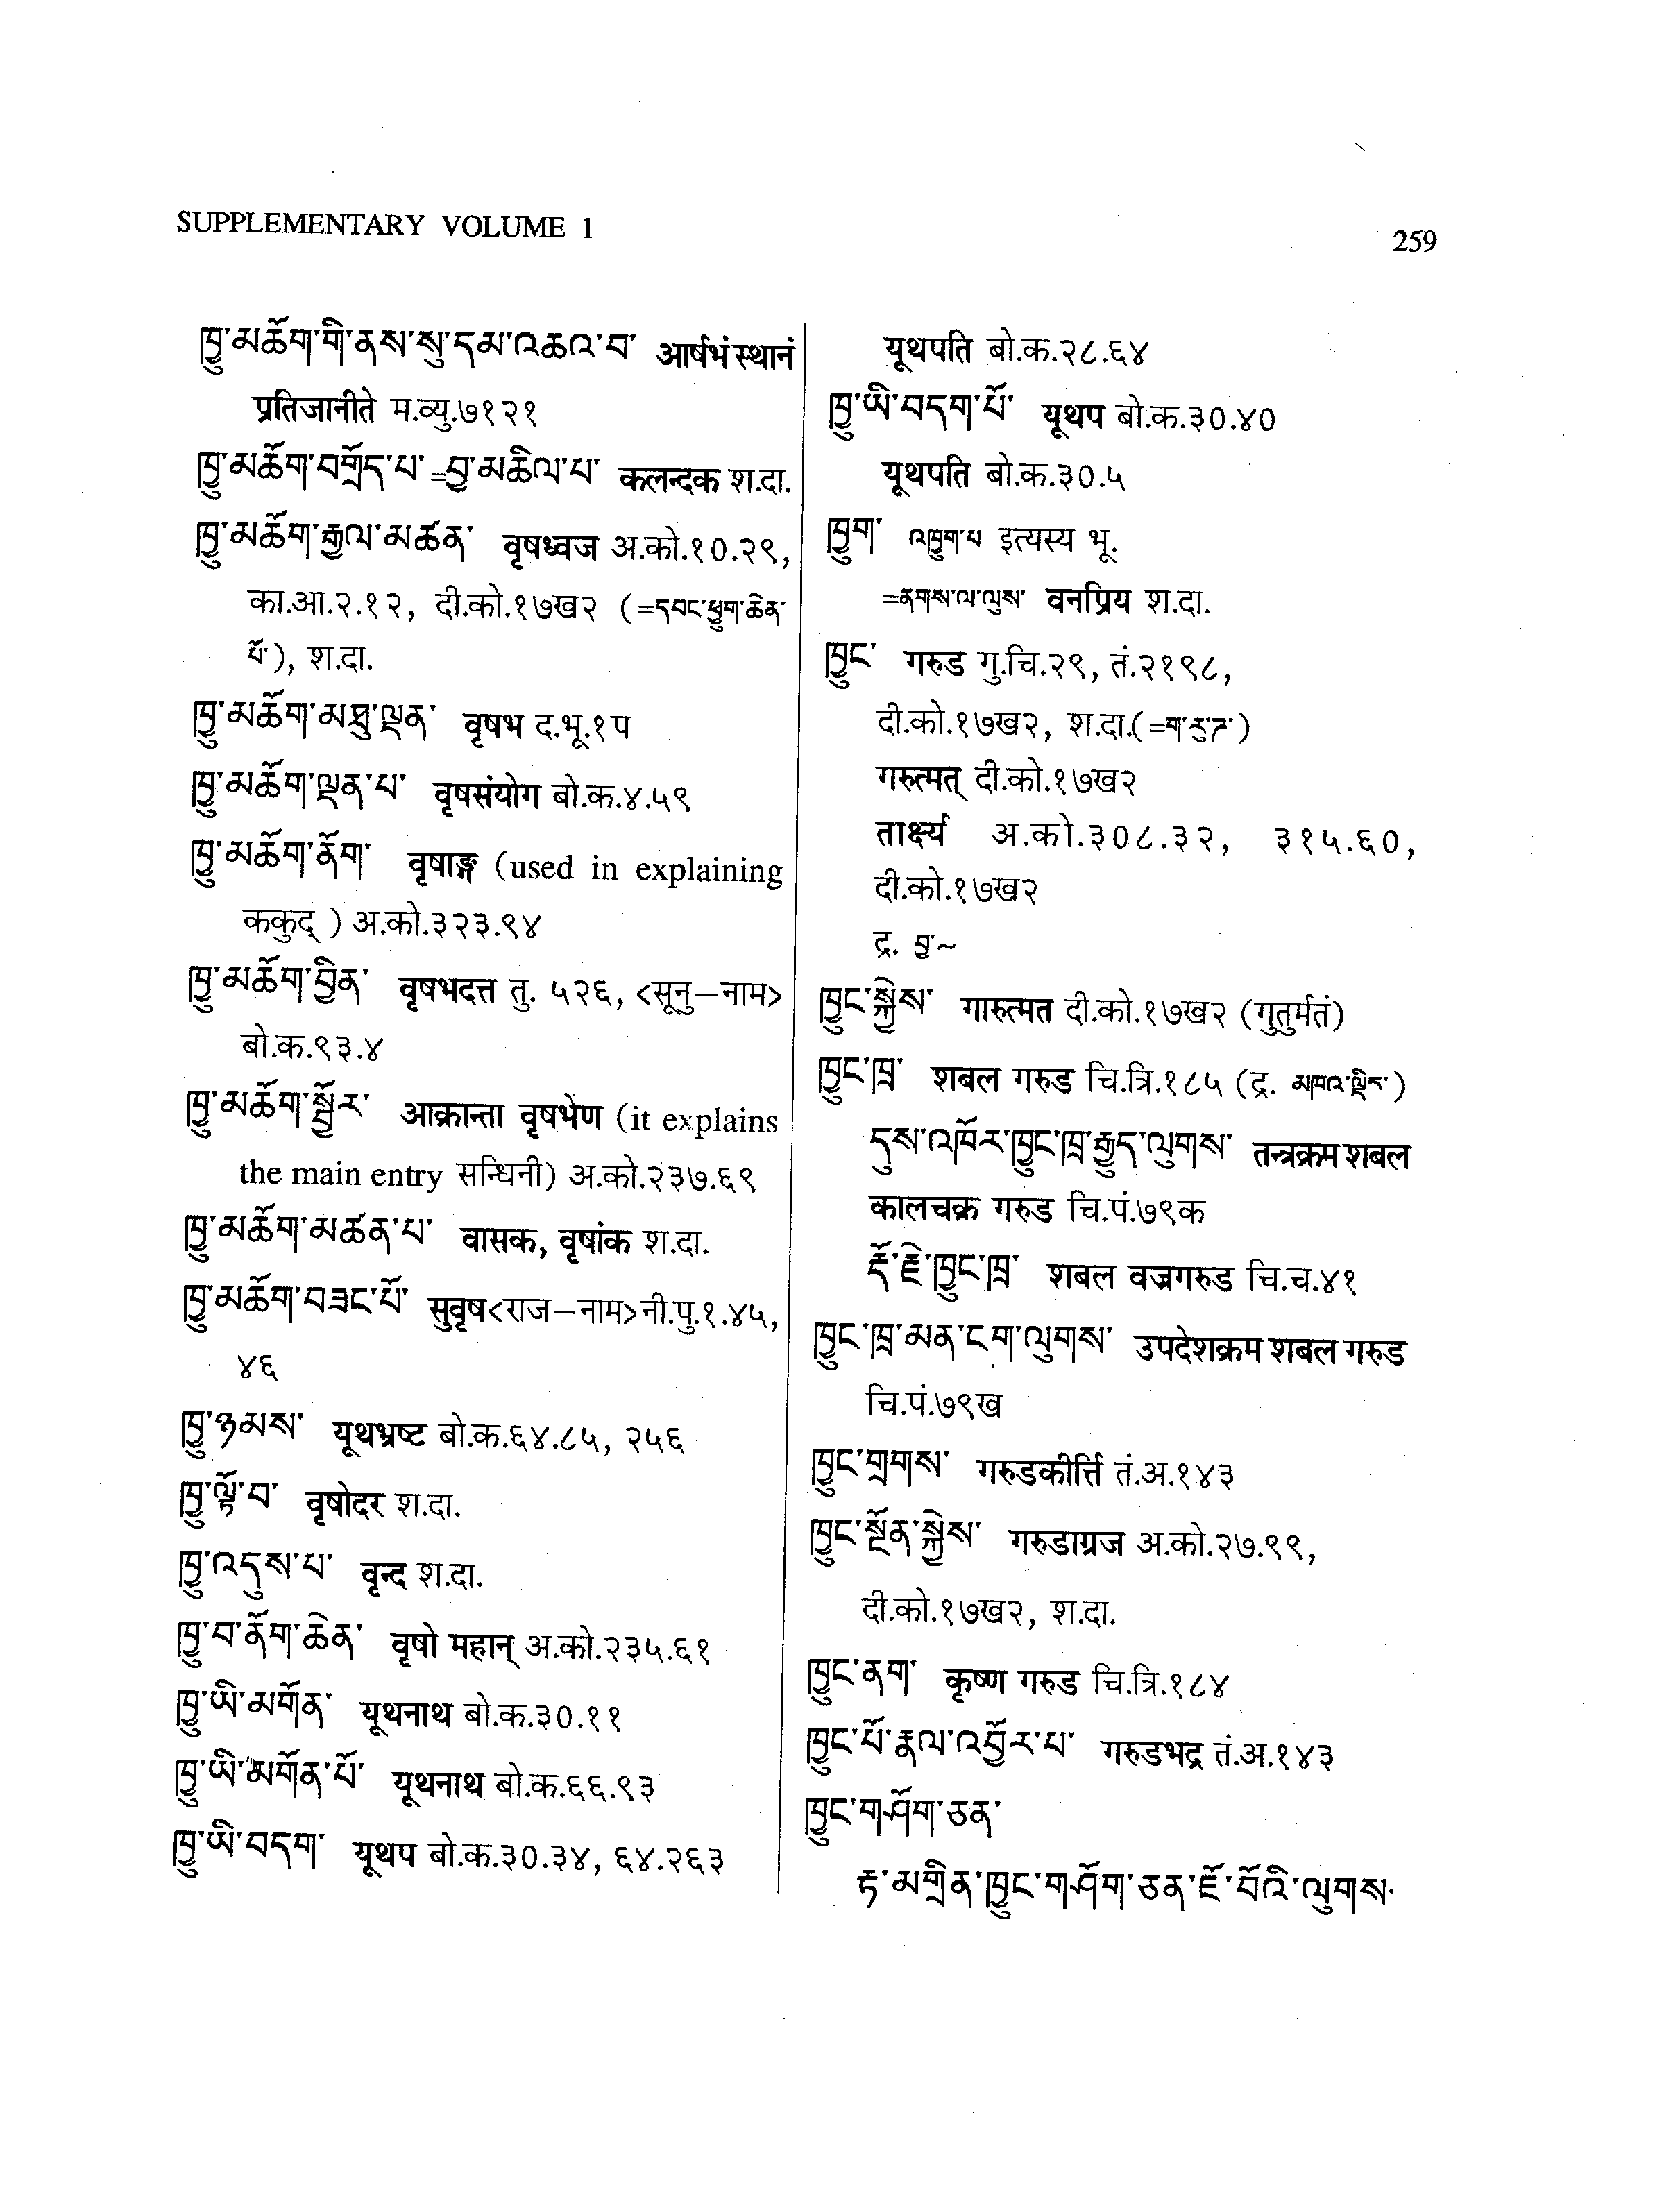 SUPPLEMENTARY VOLUME 1
259
ཁྱུ་མཆོག་གི་ནས་སུ་དམ་འཆའ་བ་ आर्षभं स्थानं
प्रतिजानीते म.व्यु.७१२१
ཁྱུ་མཆོག་བགྲོད་པ་=བྱ་མཆིལ་པ་ कलन्दक श.दा.
ཁྱུ་མཆོག་རྒྱལ་མཚན་ वृषध्वज अ.को.१०.२९,
का.आ.२.१२, दी.को.१७ख२ (=དབང་ཕྱུག་ཆེན་
པོ་), श.दा.
ཁྱུ་མཆོག་མཐུ་ལྡན་ वृषभ द.भू.१प
ཁྱུ་མཆོག་ལྡན་པ་ वृषसंयोग बो.क.४.५९
ཁྱུ་མཆོག་ནོག་ वृषाङ्ग (used in explaining
ककुद् ) अ.को.३२३.९४
ཁྱུ་མཆོག་བྱིན་ वृषभदत्त तु. ५२६, <सूनु–नाम>
बो.क.९३.४
ཁྱུ་མཆོག་སྦྱོར་ आक्रान्ता वृषभेण (it explains
the main entry सन्धिनी) अ.को.२३७.६९
ཁྱུ་མཆོག་མཚན་པ་ वासक, वृषांक श.दा.
ཁྱུ་མཆོག་བཟང་པོ་ सुवृष<राज–नाम>नी.पु.१.४५,
४६
ཁྱུ་ཉམས་ यूथभ्रष्ट बो.क.६४.८५, २५६
ཁྱུ་ལྟོ་བ་ वृषोदर श.दा.
ཁྱུ་འདུས་པ་ वृन्द श.दा.
ཁྱུ་བ་ནོག་ཆེན་ वृषो महान् अ.को.२३५.६१
ཁྱུ་ཡི་མགོན་ यूथनाथ बो.क.३०.११
ཁྱུ་ཡི་མགོན་པོ་ यूथनाथ बो.क.६६.९३
ཁྱུ་ཡི་བདག་ यूथप बो.क.३०.३४, ६४.२६३
यूथपति बो.क.२८.६४
ཁྱུ་ཡི་བདག་པོ་ यूथप बो.क.३०.४०
यूथपति बो.क.३०.५
ཁྱུག་ འཁྱུག་པ इत्यस्य भू.
=ནགས་ལ་ལུས་ वनप्रिय श.दा.
ཁྱུང་ गरुड गु.चि.२९, तं.२१९८,
दी.को.१७ख२, श.दा.(=ག་རུ་ཌ་)
गरुत्मत् दी.को.१७ख२
तार्क्ष्य अ.को.३०८.३२, ३१५.६०,
दी.को.१७ख२
द्र. བྱ་~
ཁྱུང་སྐྱེས་ गारुत्मत दी.को.१७ख२ (गुतुर्मतं)
ཁྱུང་ཁྲ་ शबल गरुड चि.त्रि.१८५ (द्र. མཁའ་ལྡིང་)
དུས་འཁོར་ཁྱུང་ཁྲ་རྒྱུད་ལུགས་ तन्त्रक्रम शबल
कालचक्र गरुड चि.पं.७९क
རྡོ་རྗེ་ཁྱུང་ཁྲ་ शबल वज्रगरुड चि.च.४१
ཁྱུང་ཁྲ་མན་ངག་ལུགས་ उपदेशक्रम शबल गरुड
चि.पं.७९ख
ཁྱུང་གྲགས་ गरुडकीर्त्ति तं.अ.१४३
ཁྱུང་སྔོན་སྐྱེས་ गरुडाग्रज अ.को.२७.९९,
दी.को.१७ख२, श.दा.
ཁྱུང་ནག་ कृष्ण गरुड चि.त्रि.१८४
ཁྱུང་པོ་རྣལ་འབྱོར་པ་ गरुडभद्र तं.अ.१४३
ཁྱུང་གཤོག་ཅན་
རྟ་མགྲིན་ཁྱུང་གཤོག་ཅན་ཇོ་བོའི་ལུགས་